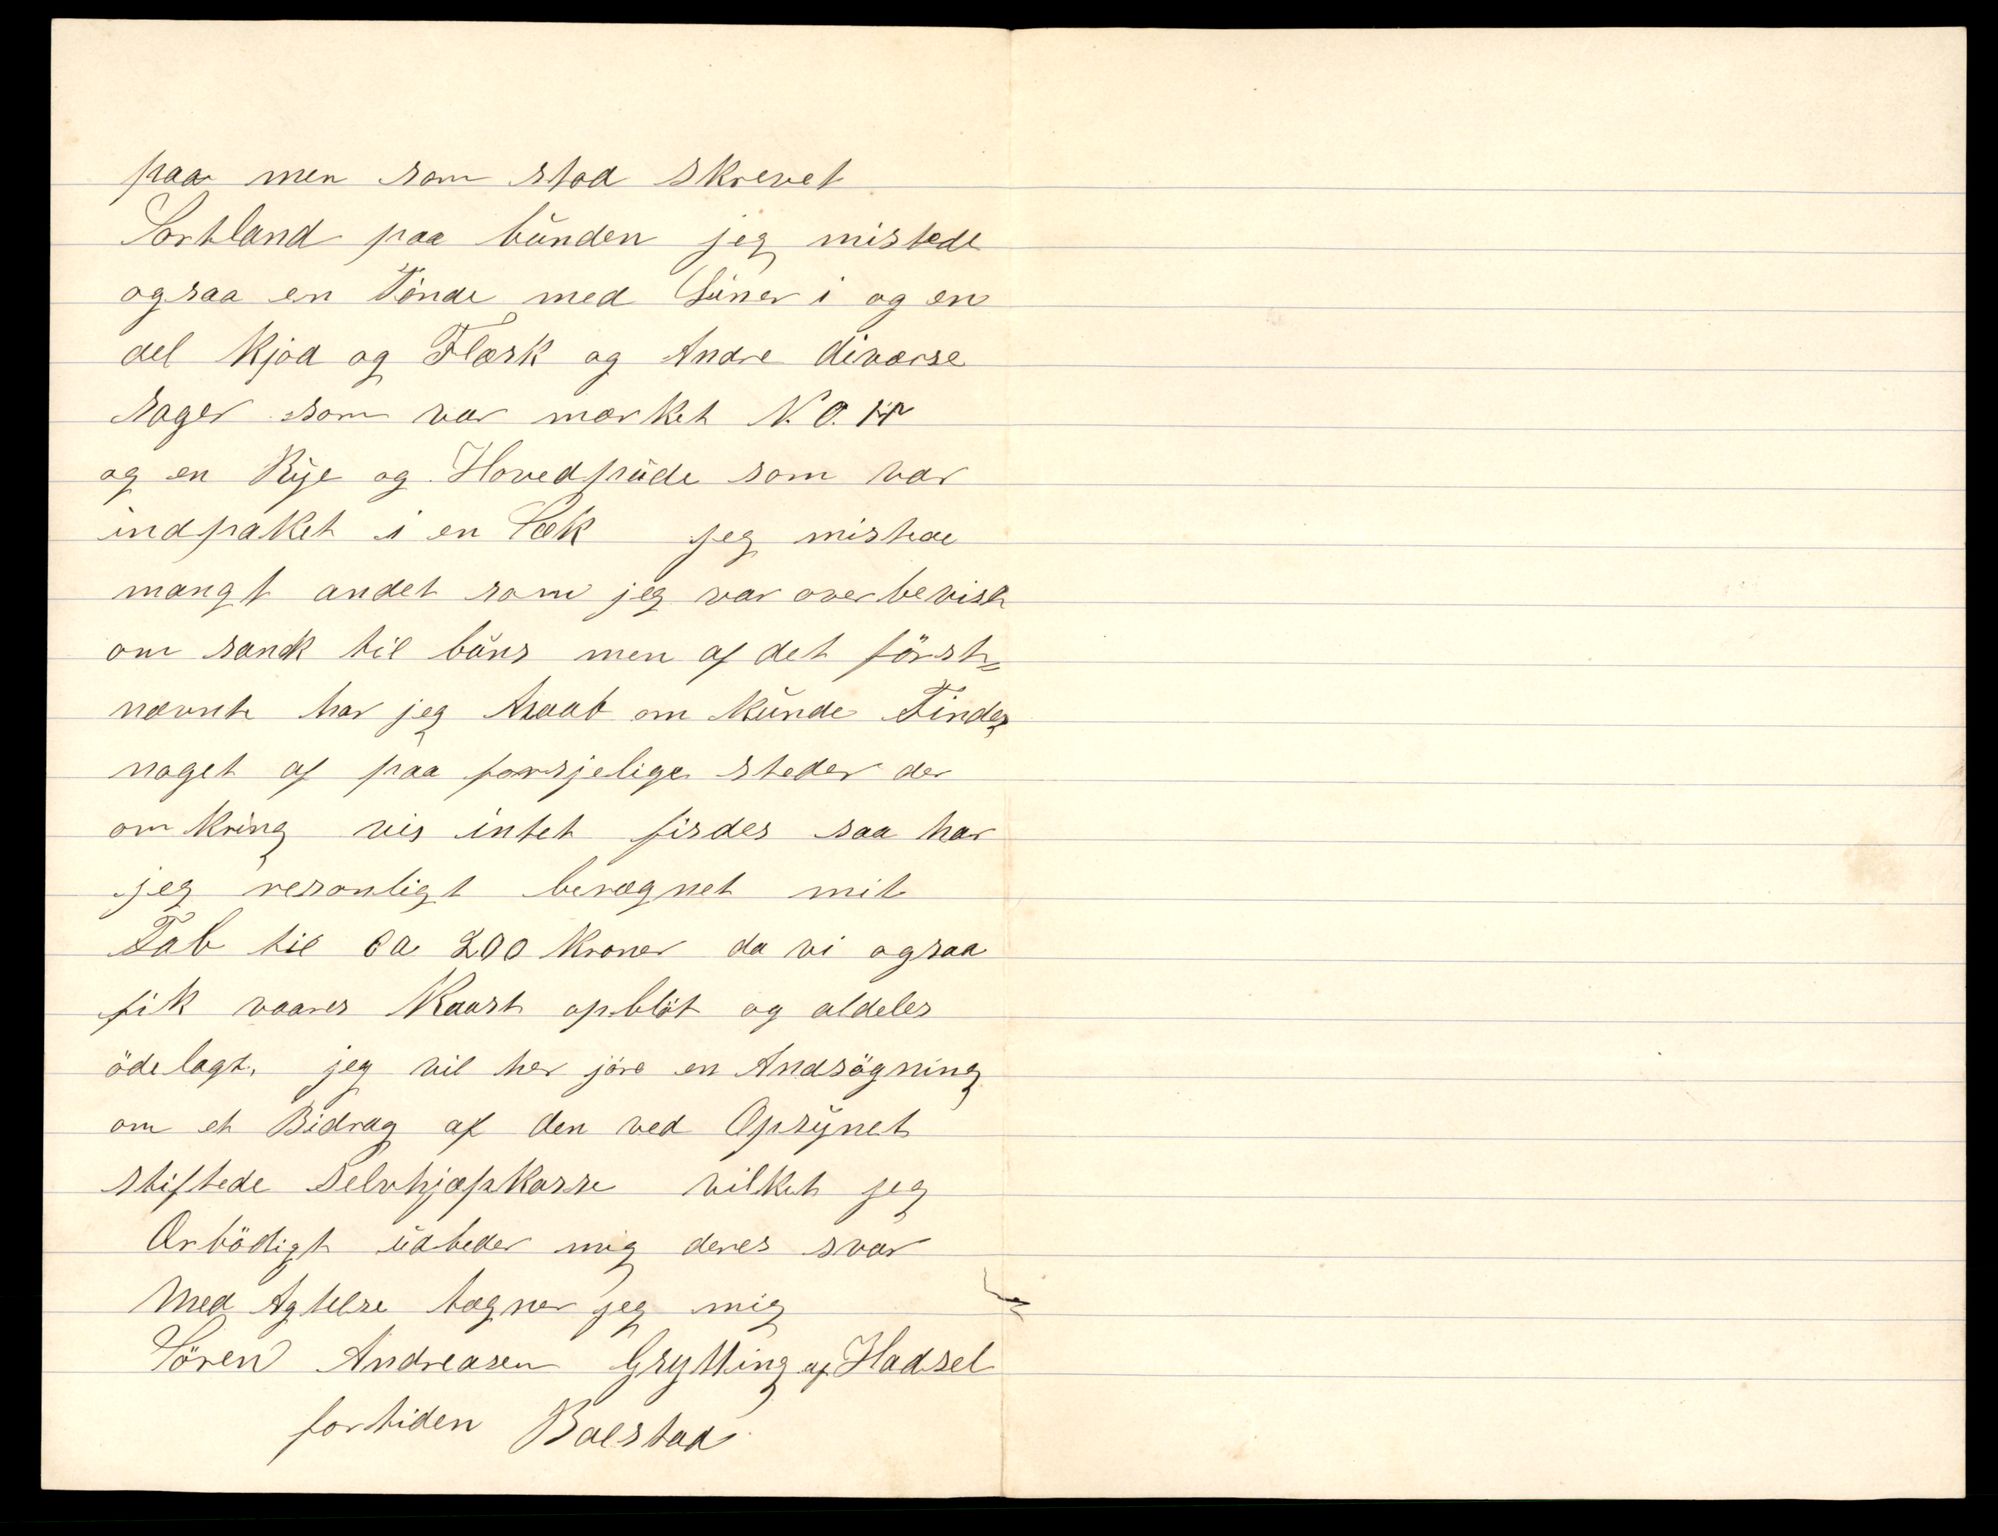 paa men som stod skrevet
Sortland paa bunden jeg mistede
ogsaa en Tönde med Liner i og en
del Kjød og Flæsk og Andre diværse
sager som var mærket N. O.
og en Rye og Hovedpude som var
indpaket i en Sæk jeg mistede
mangt andet som jeg var overbevist
om sank til buns men af det först-
nævnte har jeg Haab om kunde Findes
noget af paa forsjelige steder der
omkring vis intet findes saa har
jeg resonligt beregnet mit
Tab til ca 200 kroner da vi ogsaa
fik vaares Kaast opblöt og aldeles
ödelagt. jeg vil her jöre en Andsögning
om et Bidrag af den ved Opsynet
stiftede Selvhjæpkasse vilket jeg
Ærbödigt udbeder mig deres svar
Med Agtelse tegner jeg mig
Sören Andreasen Grytting af Hadsel
fortiden Balstad